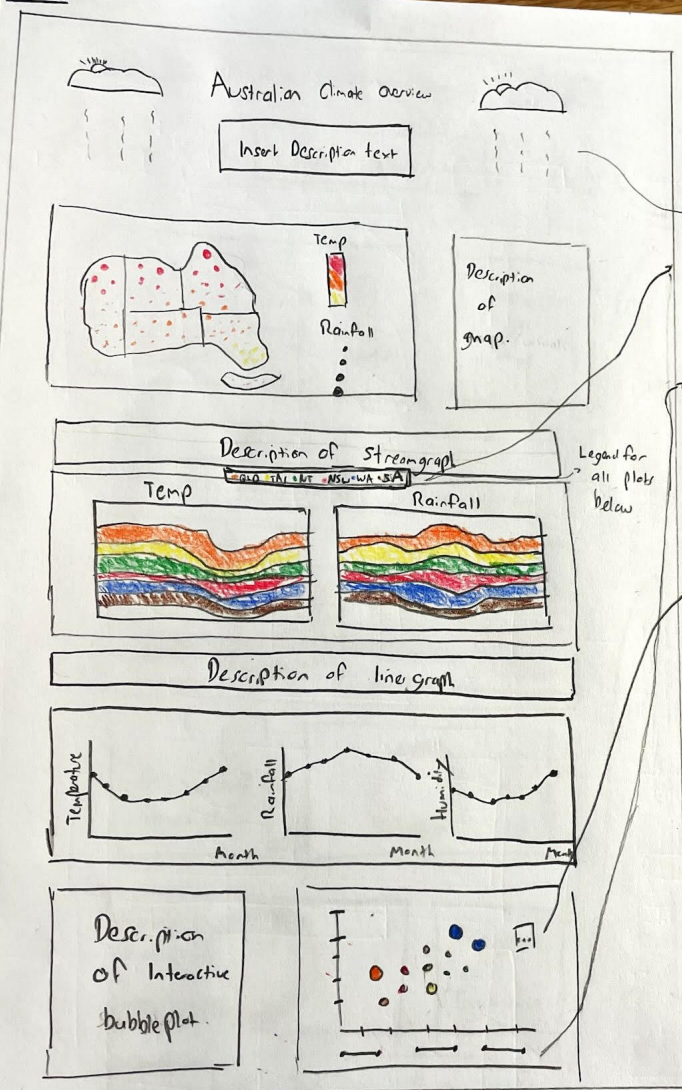 Australian Climate overview
Insert Description text
Temp
Rainfall
Description
of
map.
Description of Streamgraph
QLD TAS NT NSW WA SA
Legend for
all plots
below
Temp
Rainfall
Description of line graph
Temperature
Month
Rainfall
Month
Humidity
Month
Description
of Interactive
bubble plot.
...